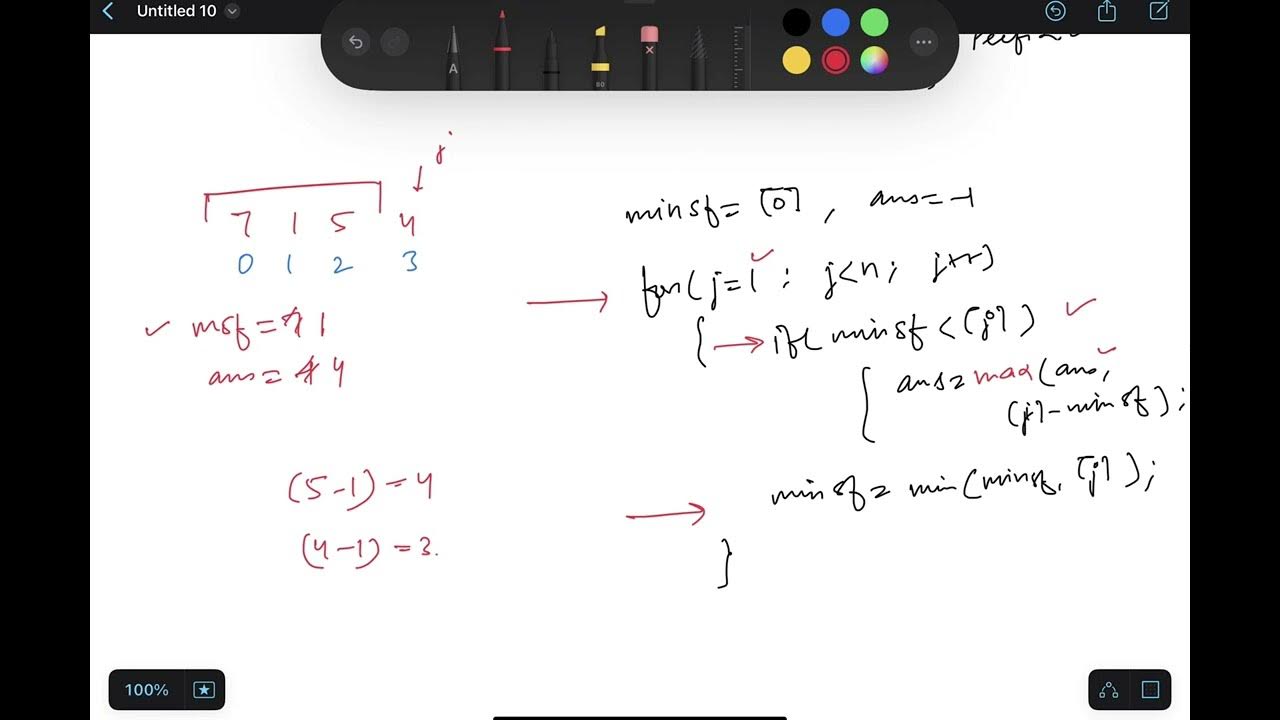 Untitled 10
A
80
j
7 1 5 4
0 1 2 3
msf = 1
ans = 4
(5-1) = 4
(4-1) = 3.
minsf = [0] , ans = -1
for(j=1 ; j<n ; j++)
{ if( minsf < [j] )
{ ans = max(ans,
[j] - minsf);
minsf = min(minsf, [j]);
}
100%